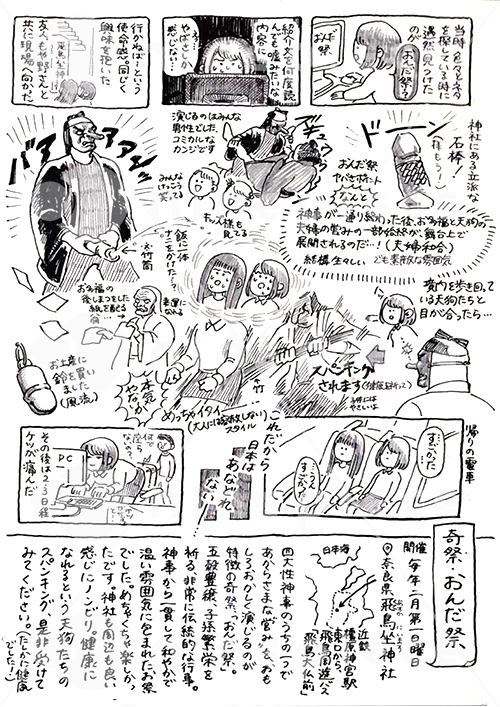 当時、色々とネタ
を探している時に
偶然見つけた
のが
おんだ祭?
おんだ
祭
紹介文を何度読
んでも嘘みたいな
内容に
やばさしか
感じない…
行かねば!という
使命感。同じく
興味を抱いた
友人もやの
共に現場へ向かった
飛鳥坐神社
神社にある立派な
石棒!
ドーン
おんだ祭
ヤバさポイント
なんと
神事が一通り終わった後、お多福と天狗の
夫婦の営みの一部始終が舞台上で
展開されるのだ…!(夫婦和合)
結構生々しい
でも素敵な雰囲気
演じるのはみんな
男性でした。
コミカルな
カンジです
みんな
けっこう
笑ってる
キッズ様も
見てる
バァァァン
※竹筒
飯に一体
ナニをかけた!?
お多福の
後しまつをした
紙を配る
幸運に
なれる
お土産に
鈴を買い
ました
(風流)
境内を歩き回って
いる天狗たちと
目が合ったら…
スパンキング
されます
子供には
やさしいよ
※竹
本気
やないか
めっちゃイタイ
(大人には容赦しない)
スタイル
これだから
日本は
あなどれ
ない
帰りの電車
…すご
かった
…うん
すごかった
その後は2、3日程
ケツが痛んだ
PC
何で
座ら
ないん?
奇祭、おんだ祭
開催 毎年二月第一日曜日
奈良県 飛鳥坐神社
あすかにいます
日本海
近鉄
橿原神宮駅
東口から
飛鳥周遊バス
「飛鳥大仏前」
四大性神事のうちの一つで
あからさまな営みを、おも
しろおかしく演じるのが
特徴の奇祭、「おんだ祭」。
五穀豊穣、子孫繁栄を
祈る、非常に伝統的な行事。
神事から一貫して和やかで
温い雰囲気に包まれたお祭
でした。めちゃくちゃ楽しかっ
たです。神社も周辺も良い
感じにノンビリ。健康に
なれるという天狗たちの
スパンキング、是非受けて
みてください。(たしかに健康
でした!)